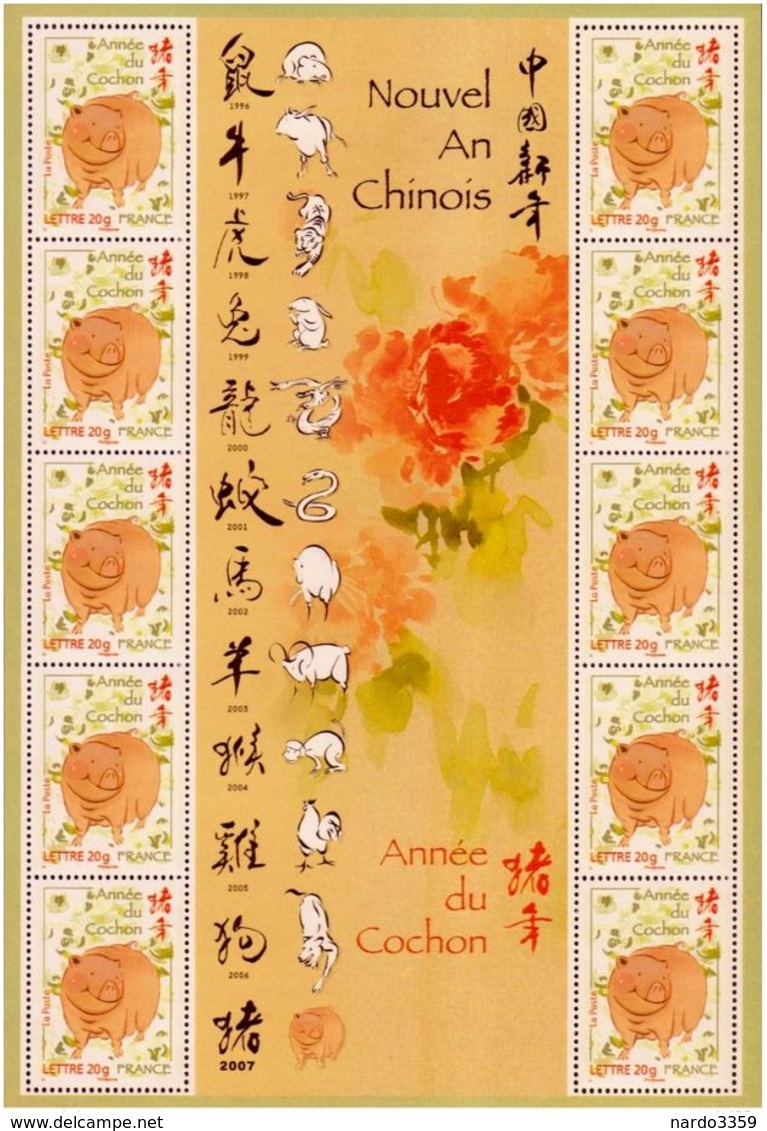 Année
du
Cochon
猪年
La Poste
LETTRE 20g FRANCE
Année
du
Cochon
猪年
La Poste
LETTRE 20g FRANCE
Année
du
Cochon
猪年
La Poste
LETTRE 20g FRANCE
Année
du
Cochon
猪年
La Poste
LETTRE 20g FRANCE
Année
du
Cochon
猪年
La Poste
LETTRE 20g FRANCE
鼠
1996
牛
1997
虎
1998
兔
1999
龍
2000
蛇
2001
馬
2002
羊
2003
猴
2004
雞
2005
狗
2006
猪
2007
Nouvel
An
Chinois
中國新年
Année
du
Cochon
猪年
Année
du
Cochon
猪年
La Poste
LETTRE 20g FRANCE
Année
du
Cochon
猪年
La Poste
LETTRE 20g FRANCE
Année
du
Cochon
猪年
La Poste
LETTRE 20g FRANCE
Année
du
Cochon
猪年
La Poste
LETTRE 20g FRANCE
Année
du
Cochon
猪年
La Poste
LETTRE 20g FRANCE
nardo3359